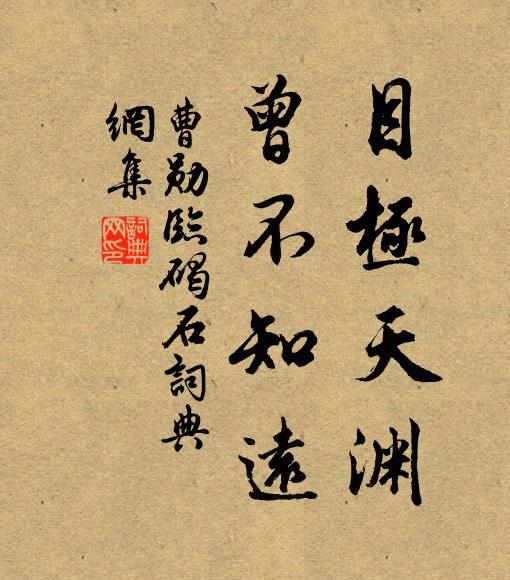 目極天渊
曾不知遠
曹勋臨碣石詞典
網集
詞典網印